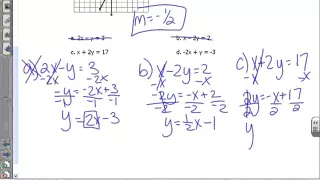 m=-1/2
a. 2x - y = 3
c. x + 2y = 17
d. -2x + y = -3
a) 2x-y=3
-2x -2x
-y = -2x+3
-1 -1 -1
y=2x-3
b) x-2y=2
-x -x
-2y=-x+2
-2 -2 -2
y=½x-1
c) x+2y=17
-x -x
2y=-x+17
2 2 2
y